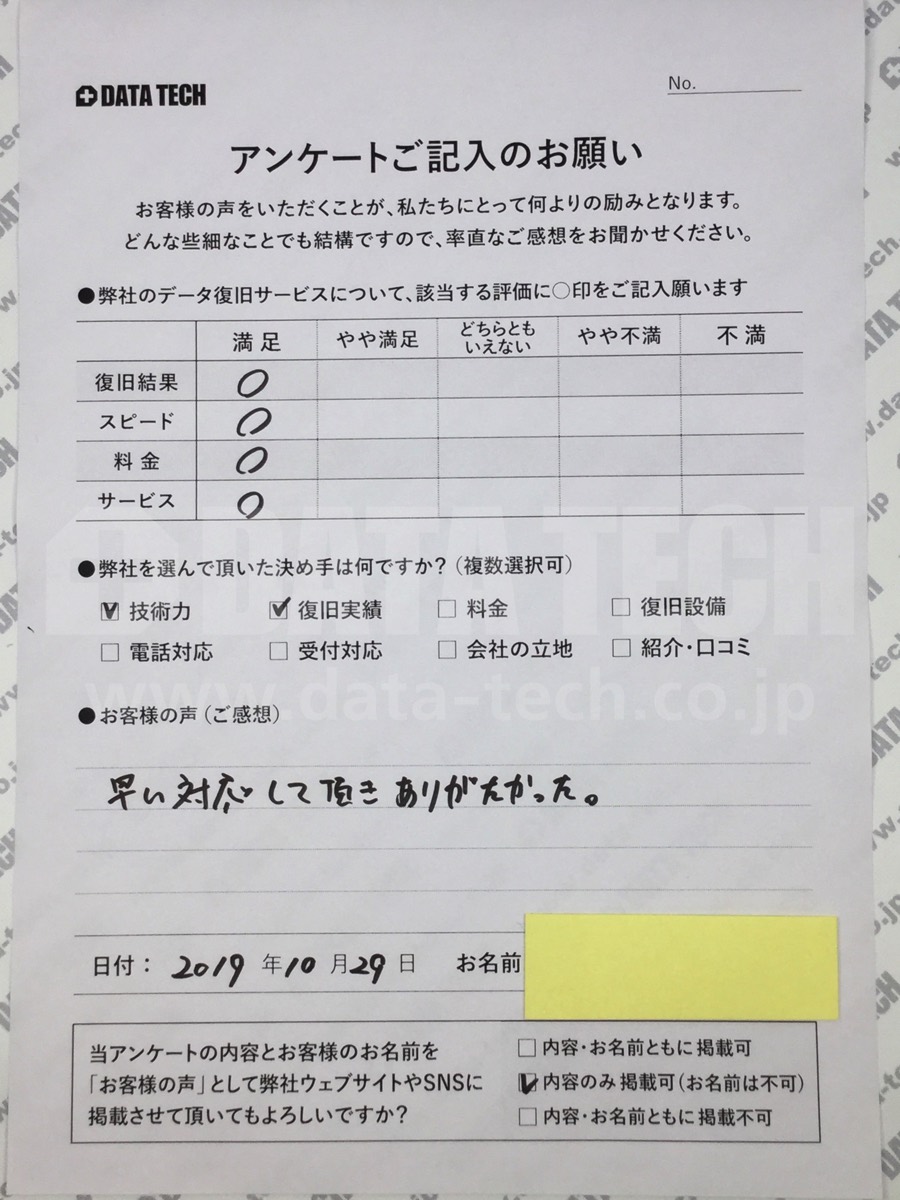 DATA TECH
No.
アンケートご記入のお願い
お客様の声をいただくことが、私たちにとって何よりの励みとなります。
どんな些細なことでも結構ですので、率直なご感想をお聞かせください。
●弊社のデータ復旧サービスについて、該当する評価に○印をご記入願います
満足 やや満足 どちらとも いえない やや不満 不満
復旧結果 ○
スピード ○
料金 ○
サービス ○
DATA TECH
●弊社を選んで頂いた決め手は何ですか?(複数選択可)
☑ 技術力 ☑ 復旧実績 □ 料金 □ 復旧設備
□ 電話対応 □ 受付対応 □ 会社の立地 □ 紹介・口コミ
www.data-tech.co.jp
●お客様の声(ご感想)
早い対応して頂きありがたかった。
日付: 2019 年 10 月 29 日 お名前
当アンケートの内容とお客様のお名前を
「お客様の声」として弊社ウェブサイトやSNSに
掲載させて頂いてもよろしいですか?
□ 内容・お名前ともに掲載可
☑ 内容のみ掲載可(お名前は不可)
□ 内容・お名前ともに掲載不可